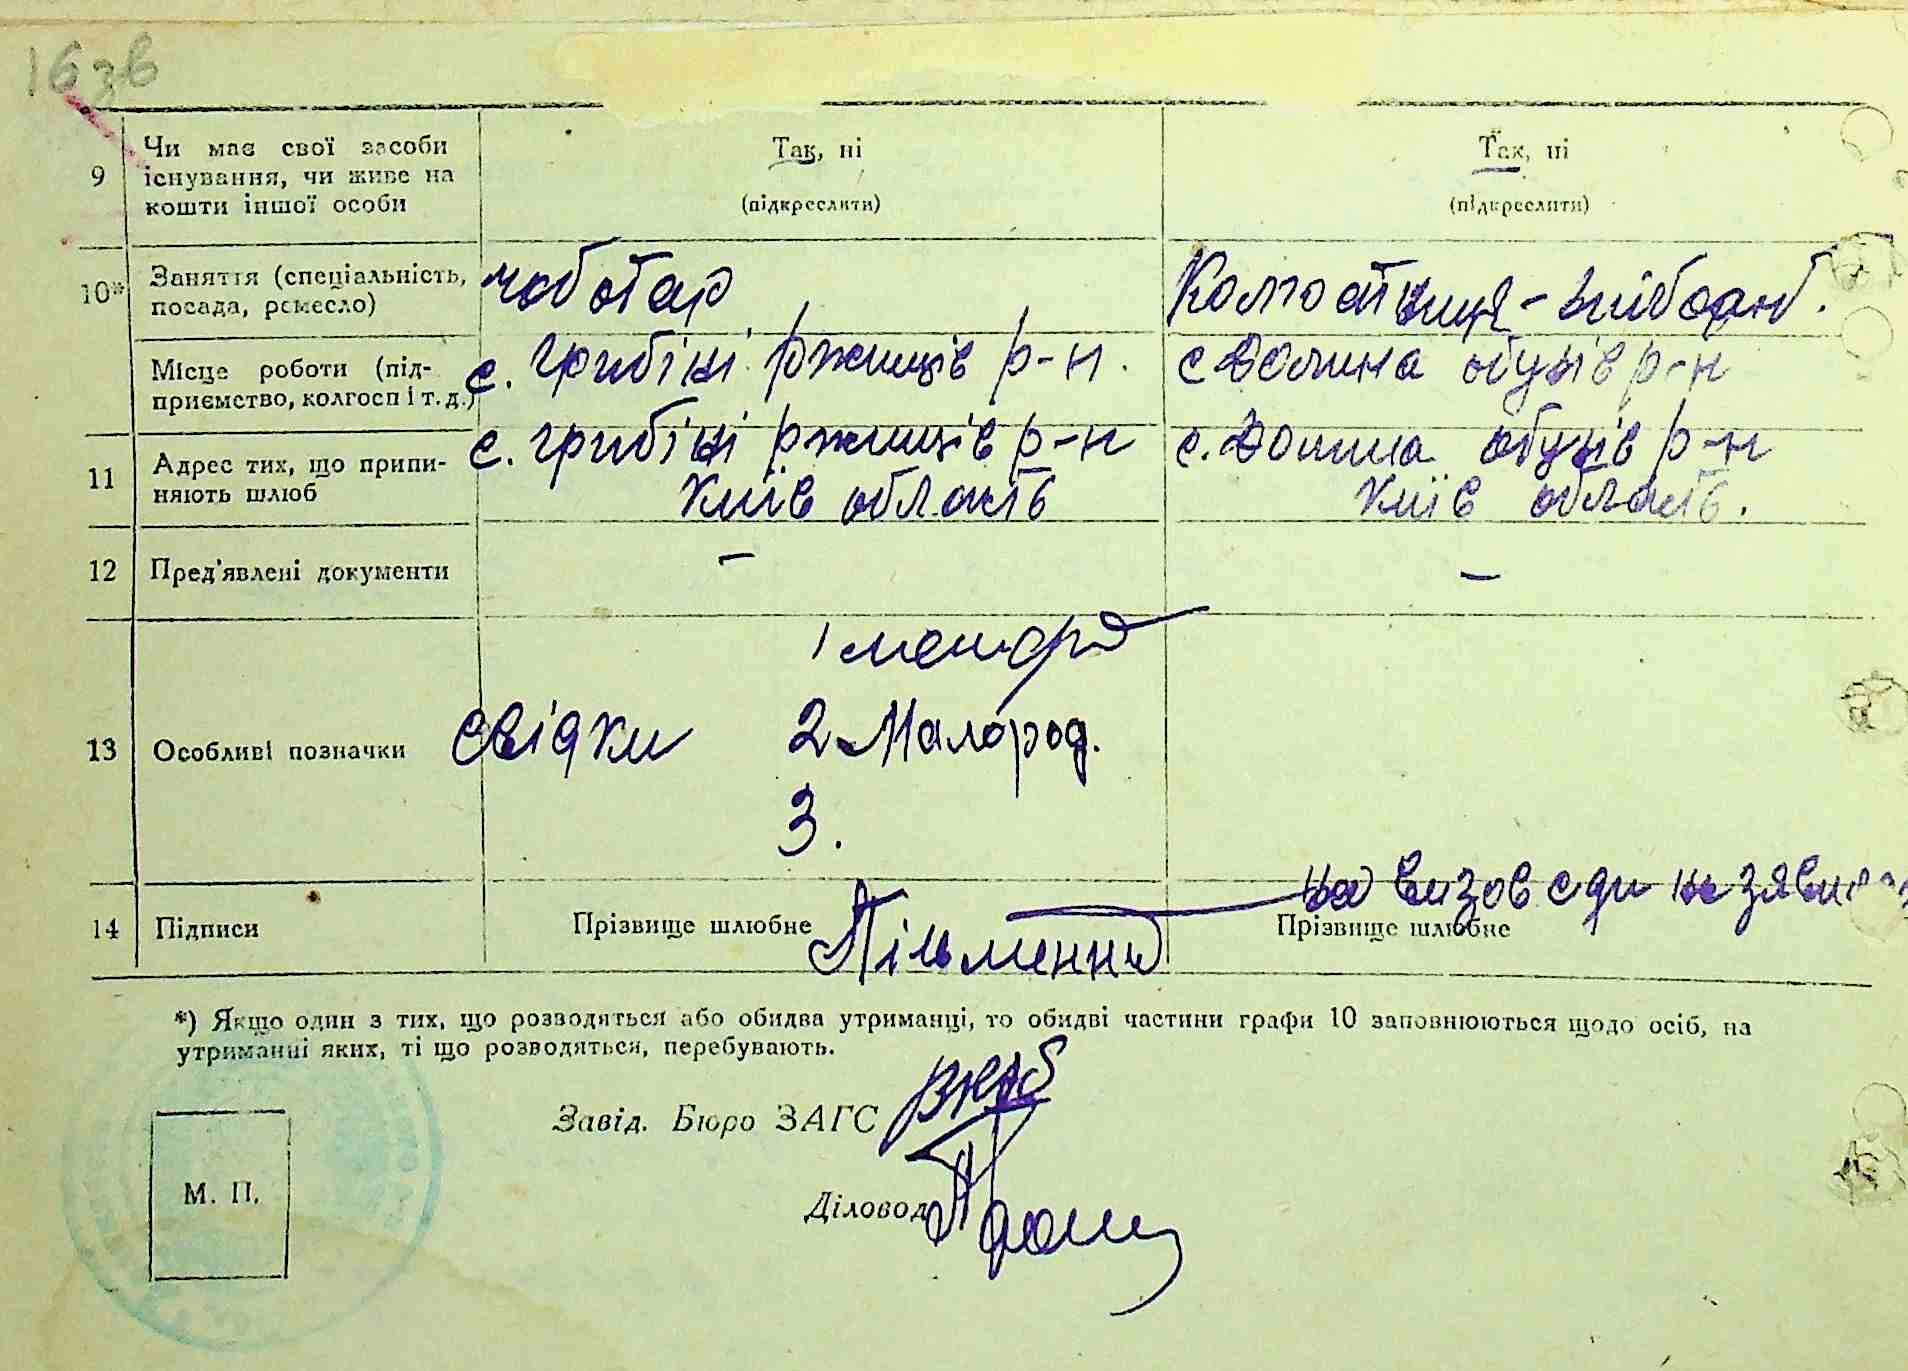 16 зв
9 Чи має свої засоби існування, чи живе на кошти іншої особи
Так, ні
(підкреслити)
Так, ні
(підкреслити)
10* Заняття (спеціальність, посада, ремесло)
чоботар
Колгостниця-
Місце роботи (підприємство, колгосп і т. д.)
с. грибіні ржищів р-н.
с Долина обухів р-н
11 Адрес тих, що припиняють шлюб
с. грибіні ржищів р-н
Київ область
с. Долина обухів р-н
Київ область.
12 Пред'явлені документи
–
–
13 Особливі позначки
свідки
1
2 Малород.
3.
14 Підписи
Прізвище шлюбне
Пільменни
на визов сди не зявил
Прізвище шлюбне
*) Якщо один з тих, що розводяться або обидва утриманці, то обидві частини графи 10 заповнюються щодо осіб, на
утриманні яких, ті що розводяться, перебувають.
Завід. Бюро ЗАГС
М. П.
Діловод